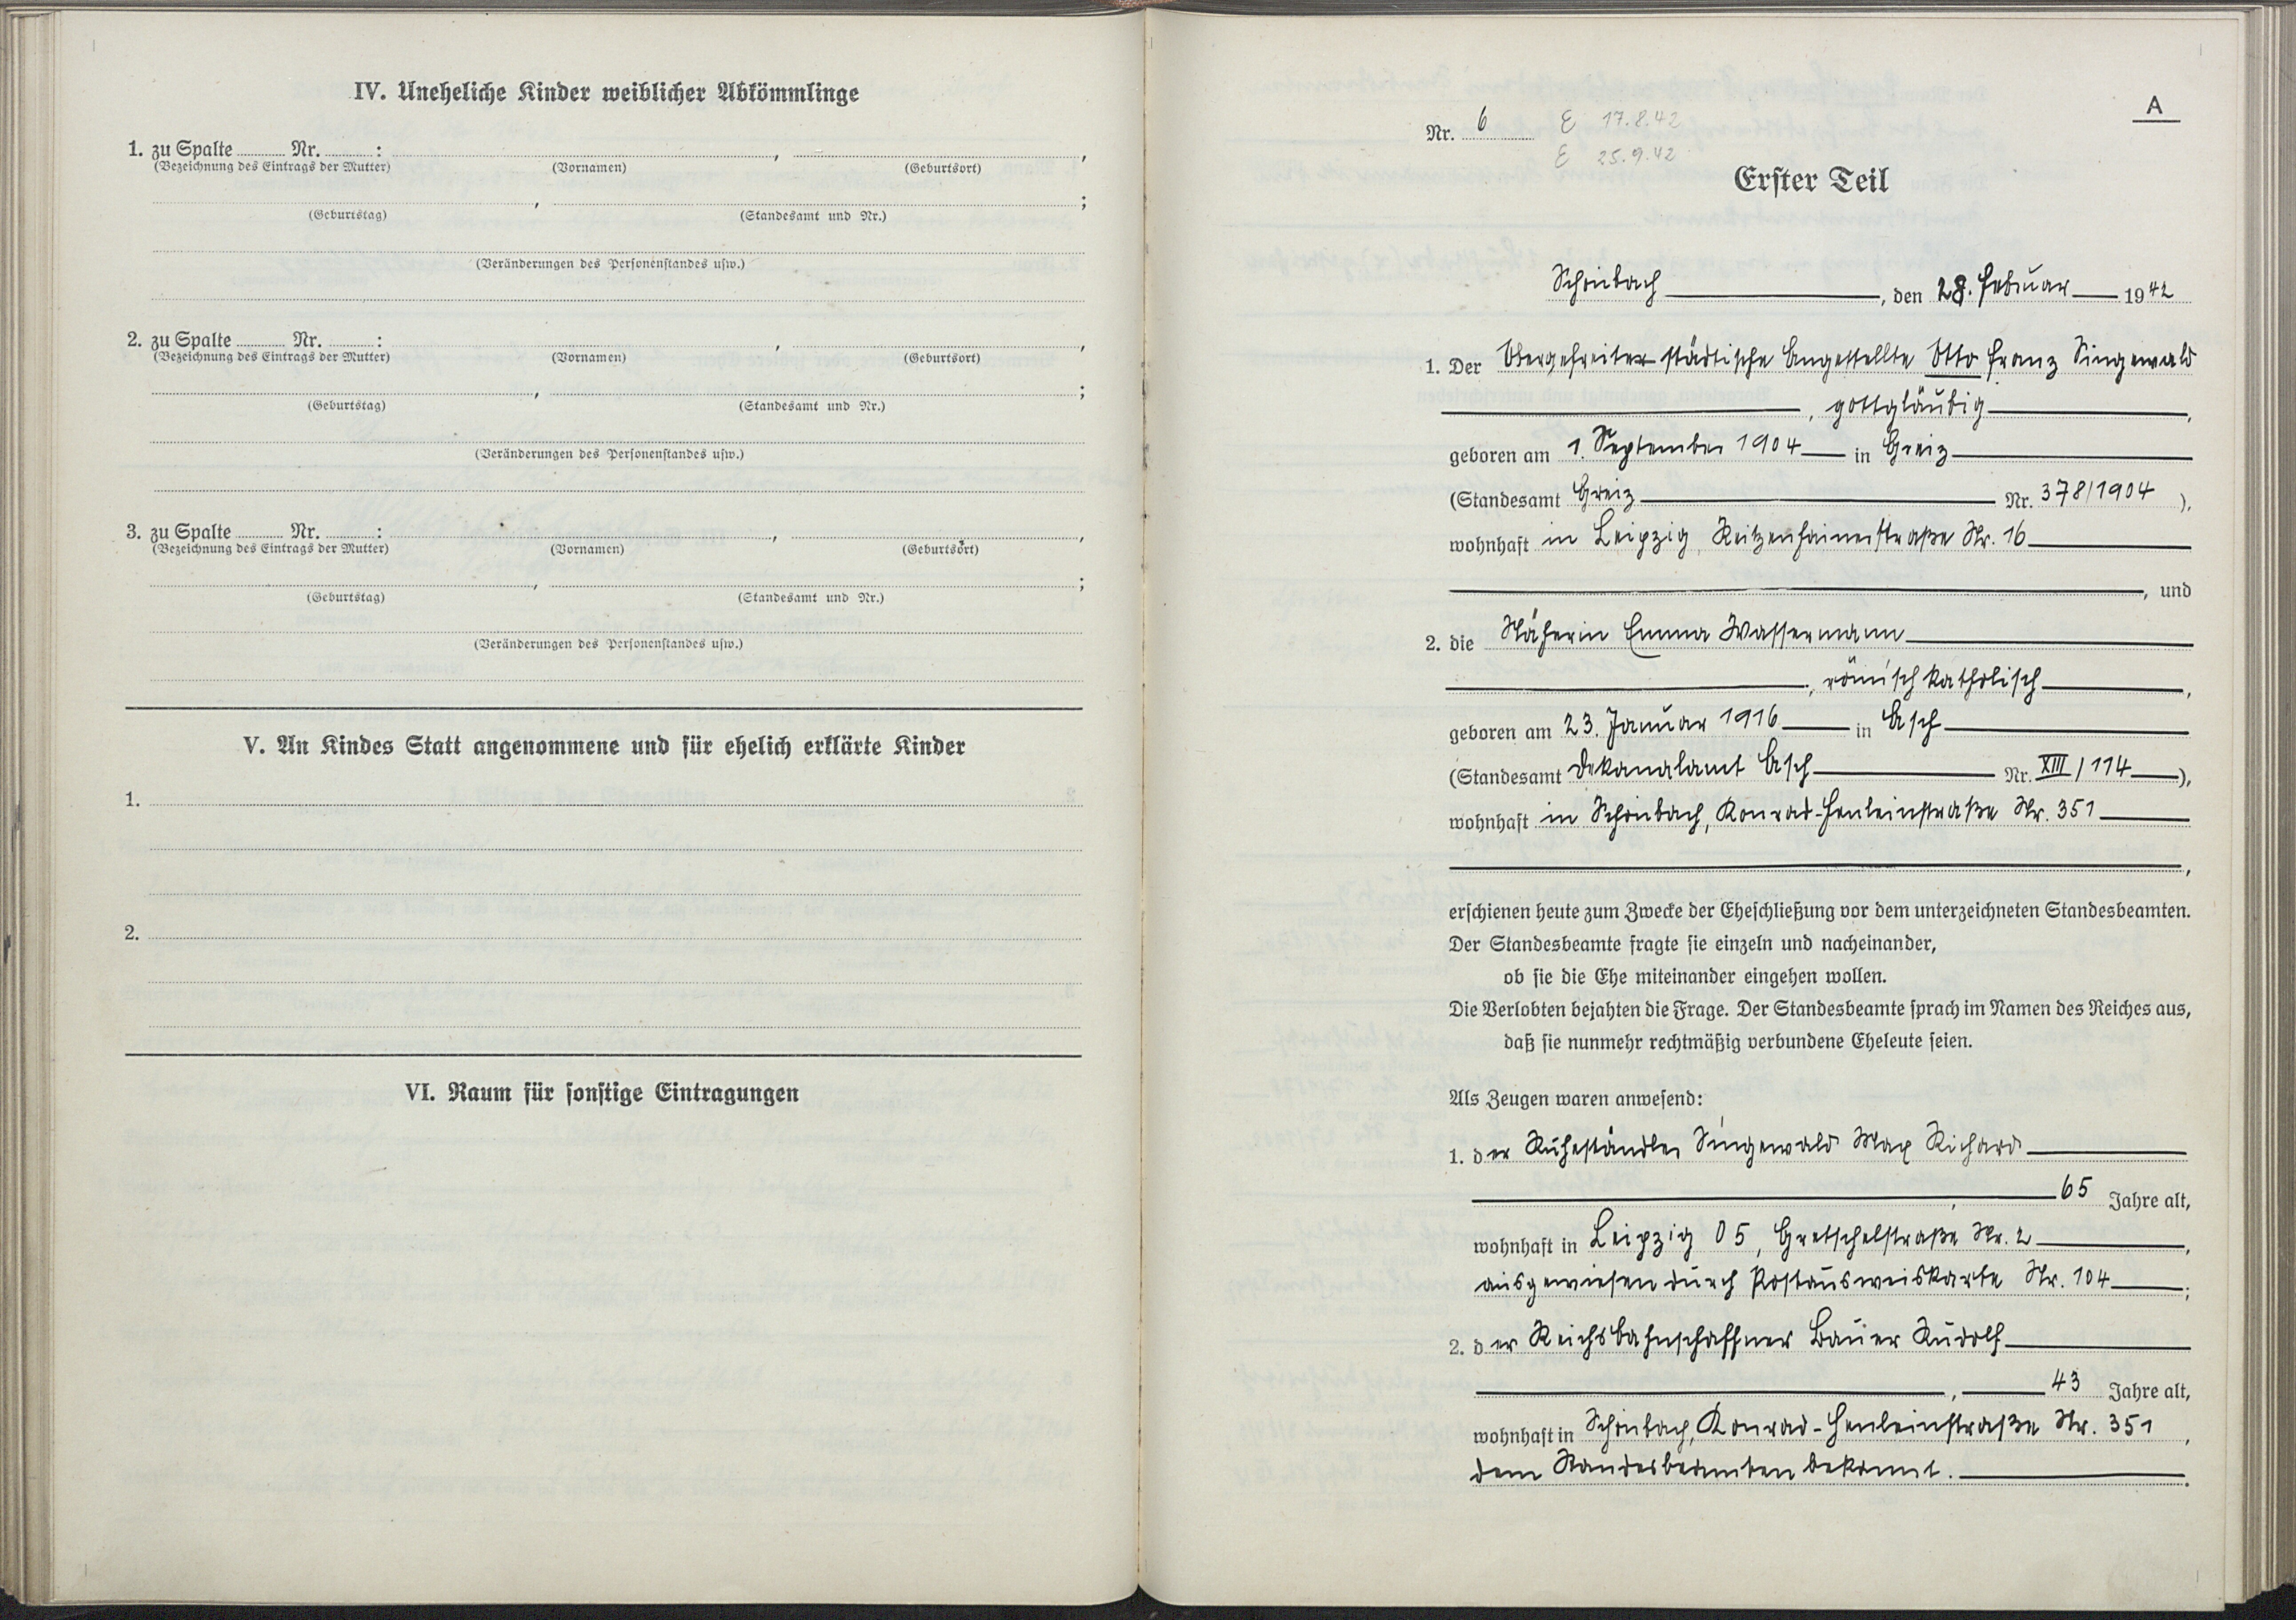 IV. Uneheliche Kinder weiblicher Abkömmlinge
1. zu Spalte Nr. : , ,
(Bezeichnung des Eintrags der Mutter) (Vornamen) (Geburtsort)
, ;
(Geburtstag) (Standesamt und Nr.)
(Veränderungen des Personenstandes usw.)
2. zu Spalte Nr. : , ,
(Bezeichnung des Eintrags der Mutter) (Vornamen) (Geburtsort)
, ;
(Geburtstag) (Standesamt und Nr.)
(Veränderungen des Personenstandes usw.)
3. zu Spalte Nr. : , ,
(Bezeichnung des Eintrags der Mutter) (Vornamen) (Geburtsort)
, ;
(Geburtstag) (Standesamt und Nr.)
(Veränderungen des Personenstandes usw.)
V. An Kindes Statt angenommene und für ehelich erklärte Kinder
1.
2.
VI. Raum für sonstige Eintragungen
A
Nr. 6 E 17.8.42
E 25.9.42
Erster Teil
Schönbach, den 28. Februar 1942
1. Der Obergefreiter städtische Angestellte Otto Franz Singewald
, gottgläubig,
geboren am 1. September 1904 in Greiz
(Standesamt Greiz Nr. 378/1904 ),
wohnhaft in Leipzig, Reitzenhainerstraße Nr. 16
, und
2. die Näherin Emma Wassermann
, römisch katholisch,
geboren am 23. Januar 1916 in Asch
(Standesamt Dekanalamt Asch Nr. XIII/114),
wohnhaft in Schönbach, Konrad-Henleinstraße Nr. 351
,
erschienen heute zum Zwecke der Eheschließung vor dem unterzeichneten Standesbeamten.
Der Standesbeamte fragte sie einzeln und nacheinander,
ob sie die Ehe miteinander eingehen wollen.
Die Verlobten bejahten die Frage. Der Standesbeamte sprach im Namen des Reiches aus,
daß sie nunmehr rechtmäßig verbundene Eheleute seien.
Als Zeugen waren anwesend:
1. der Ruheständler Singewald Max Richard
, 65 Jahre alt,
wohnhaft in Leipzig O5, Gretschelstraße Nr. 2,
ausgewiesen durch Postausweiskarte Nr. 104;
2. der Reichsbahnschaffner Bauer Rudolf
, 43 Jahre alt,
wohnhaft in Schönbach, Konrad-Henleinstraße Nr. 351,
dem Standesbeamten bekannt.